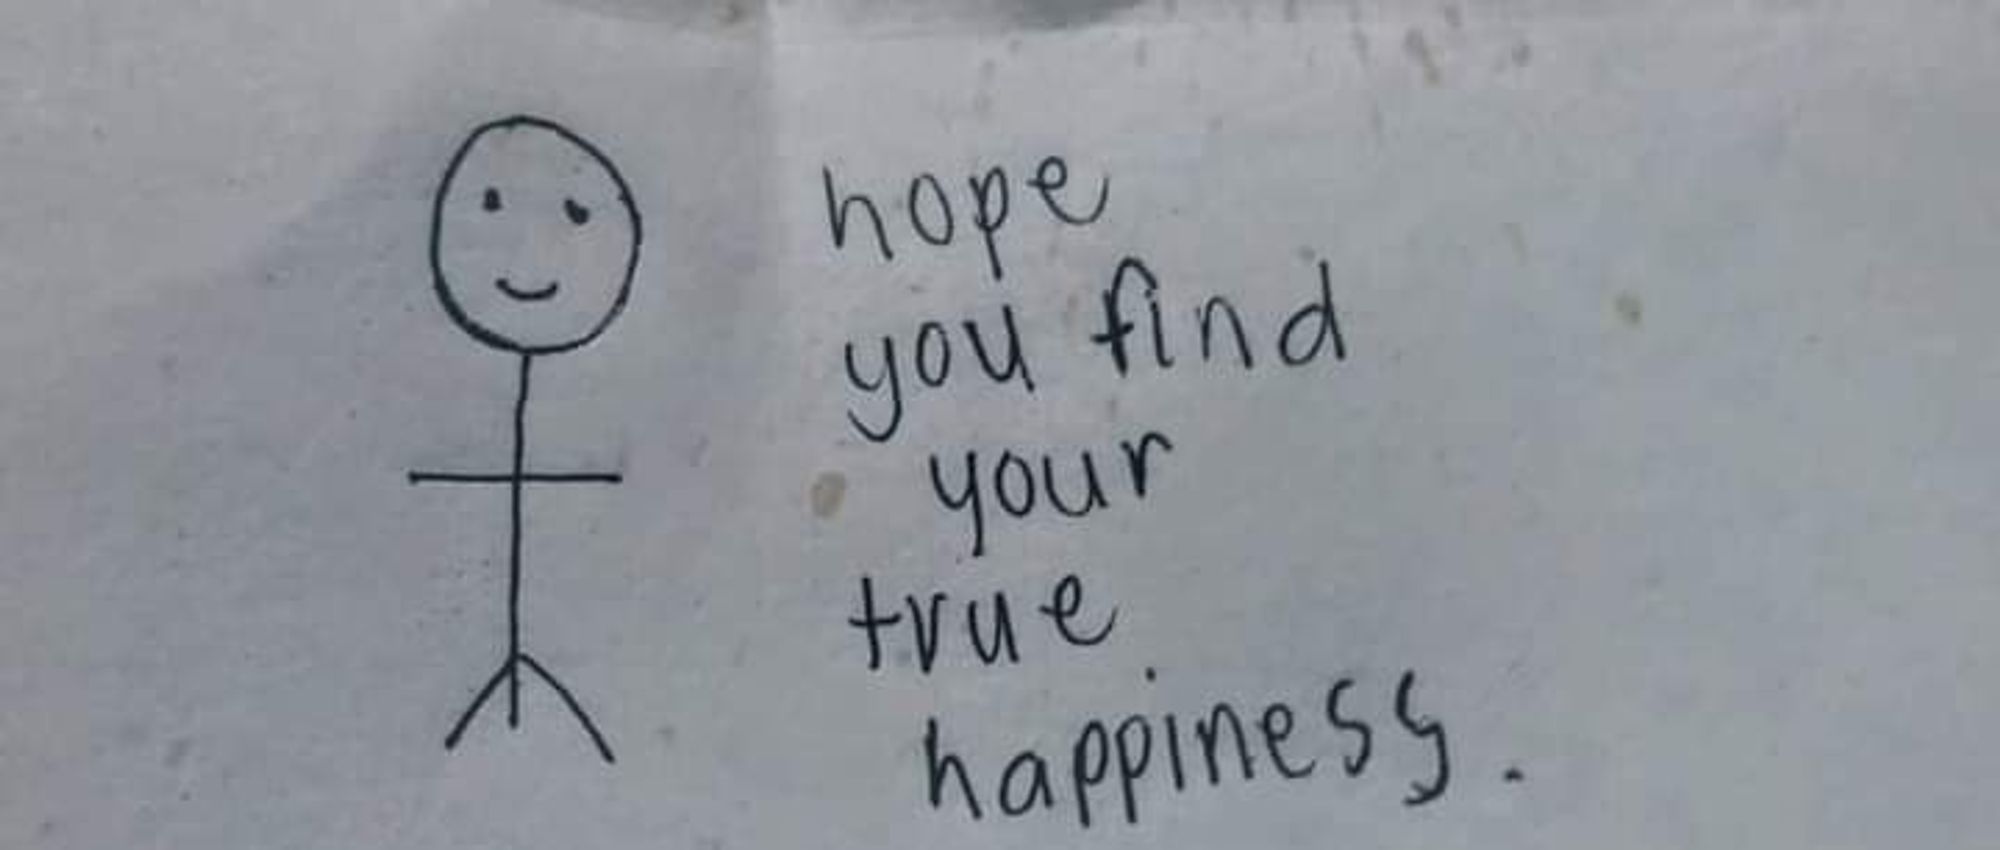 hope
you find
your
true
happiness.